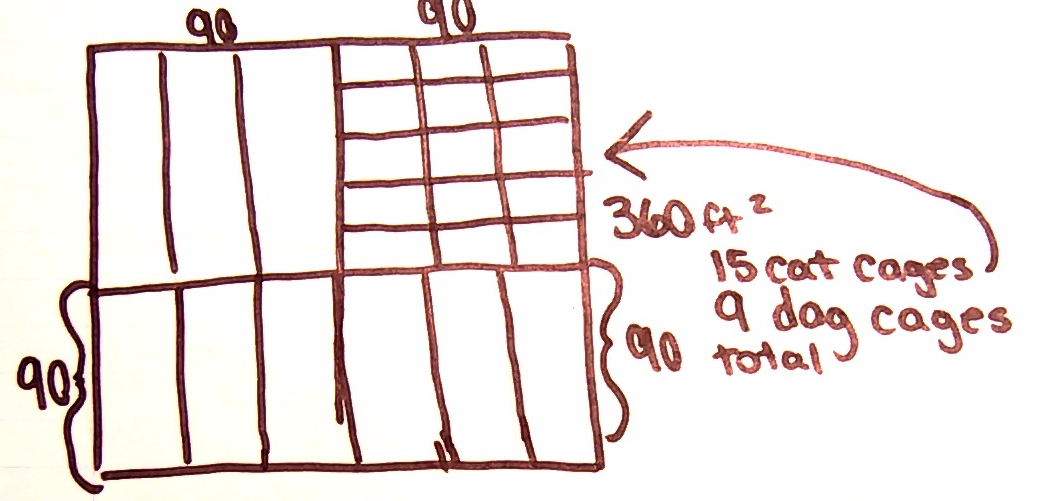 90
90
360 ft²
15 cat cages
9 dog cages
total
90
90